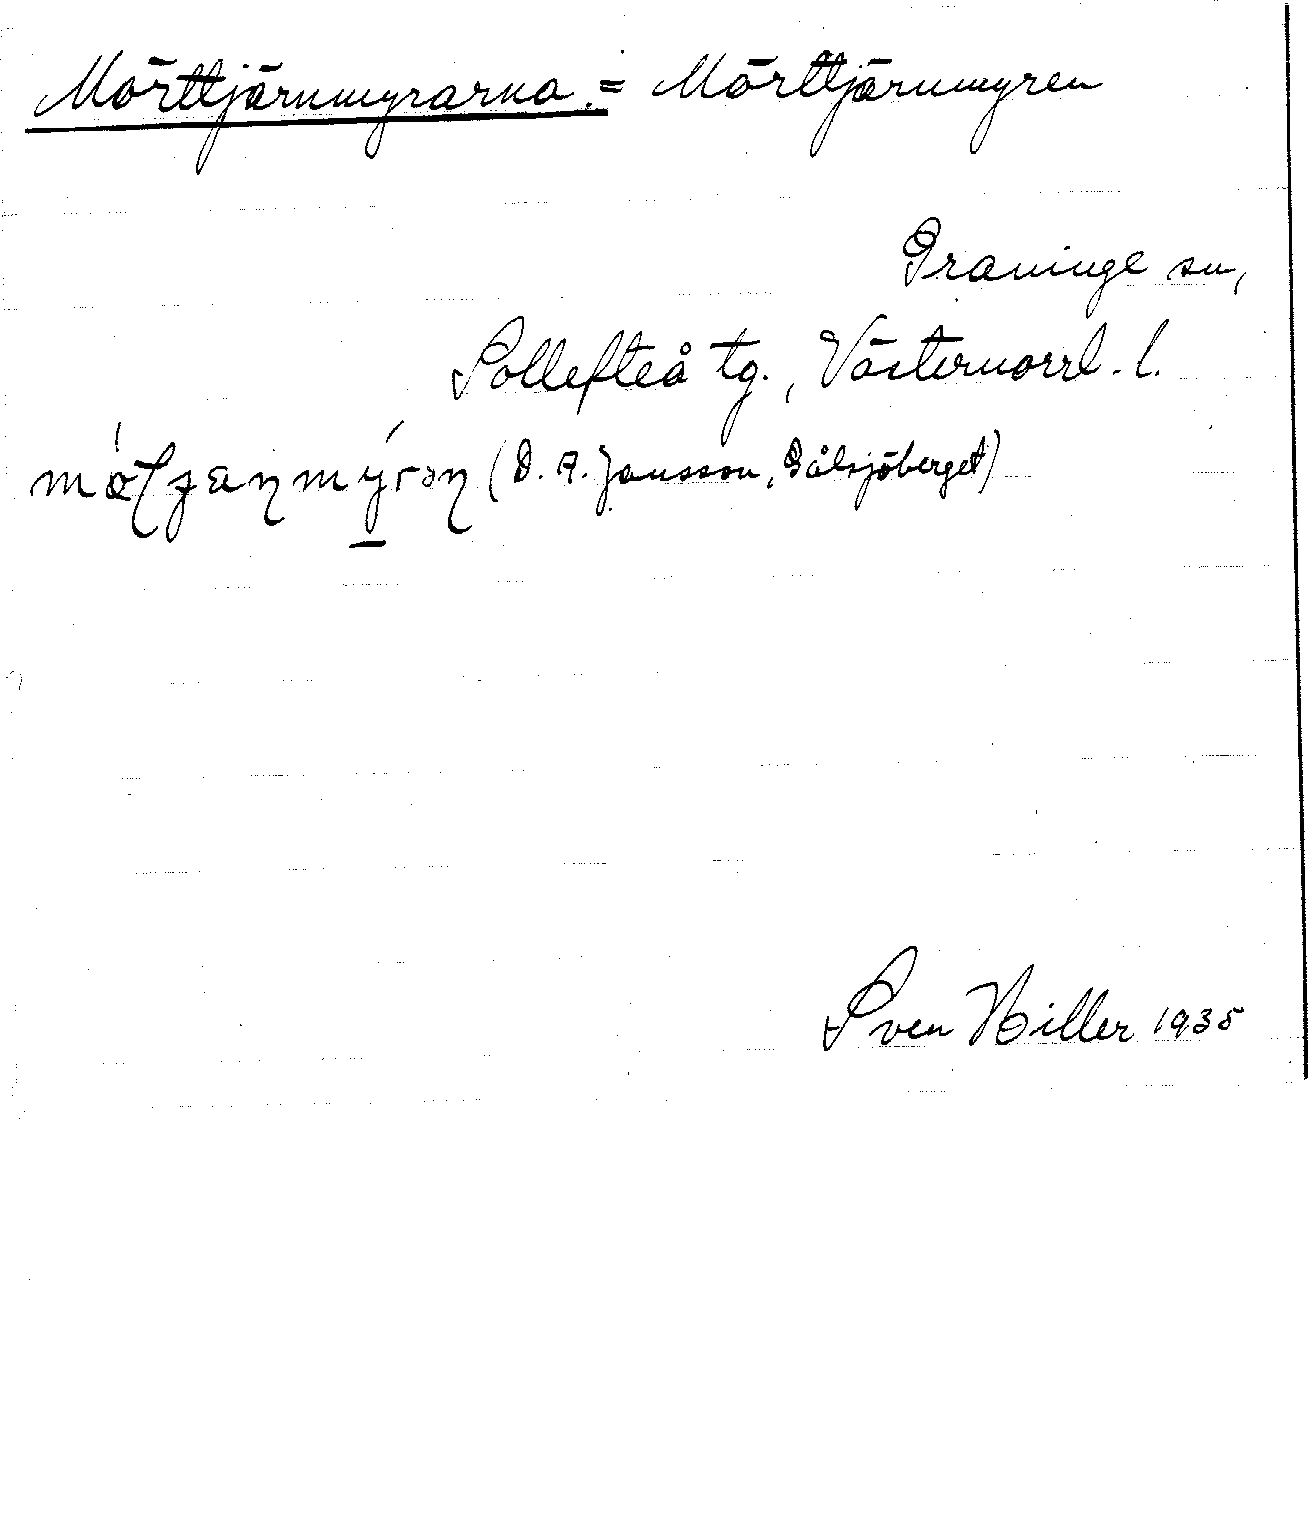 Mörttjärnmyrarna. = Mörttjärnmyren
Graninge sn,
Sollefteå tg., Västernorrl. l.
(D. A. Jansson, Gålsjöberget)
Sven Hiller 1935